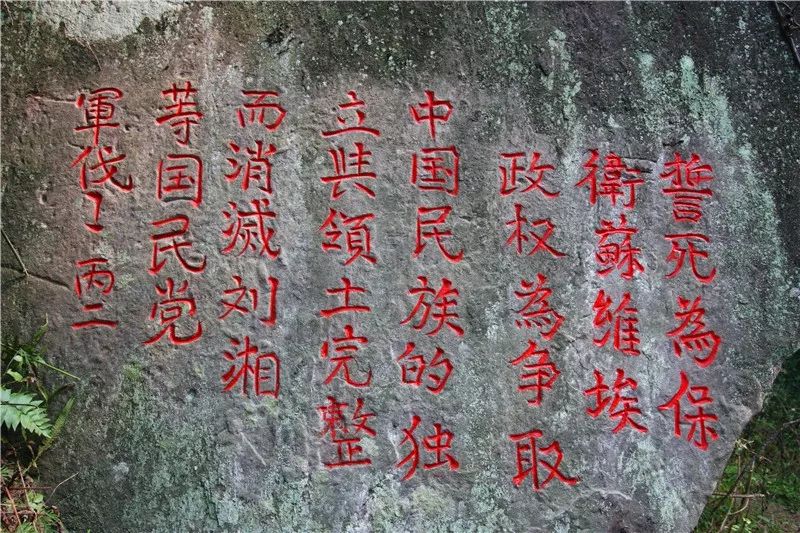 誓死為保
衛蘇維埃
政权為争取
中国民族的独
立與領土完整
而消滅刘湘
等国民党
軍伐 丙二